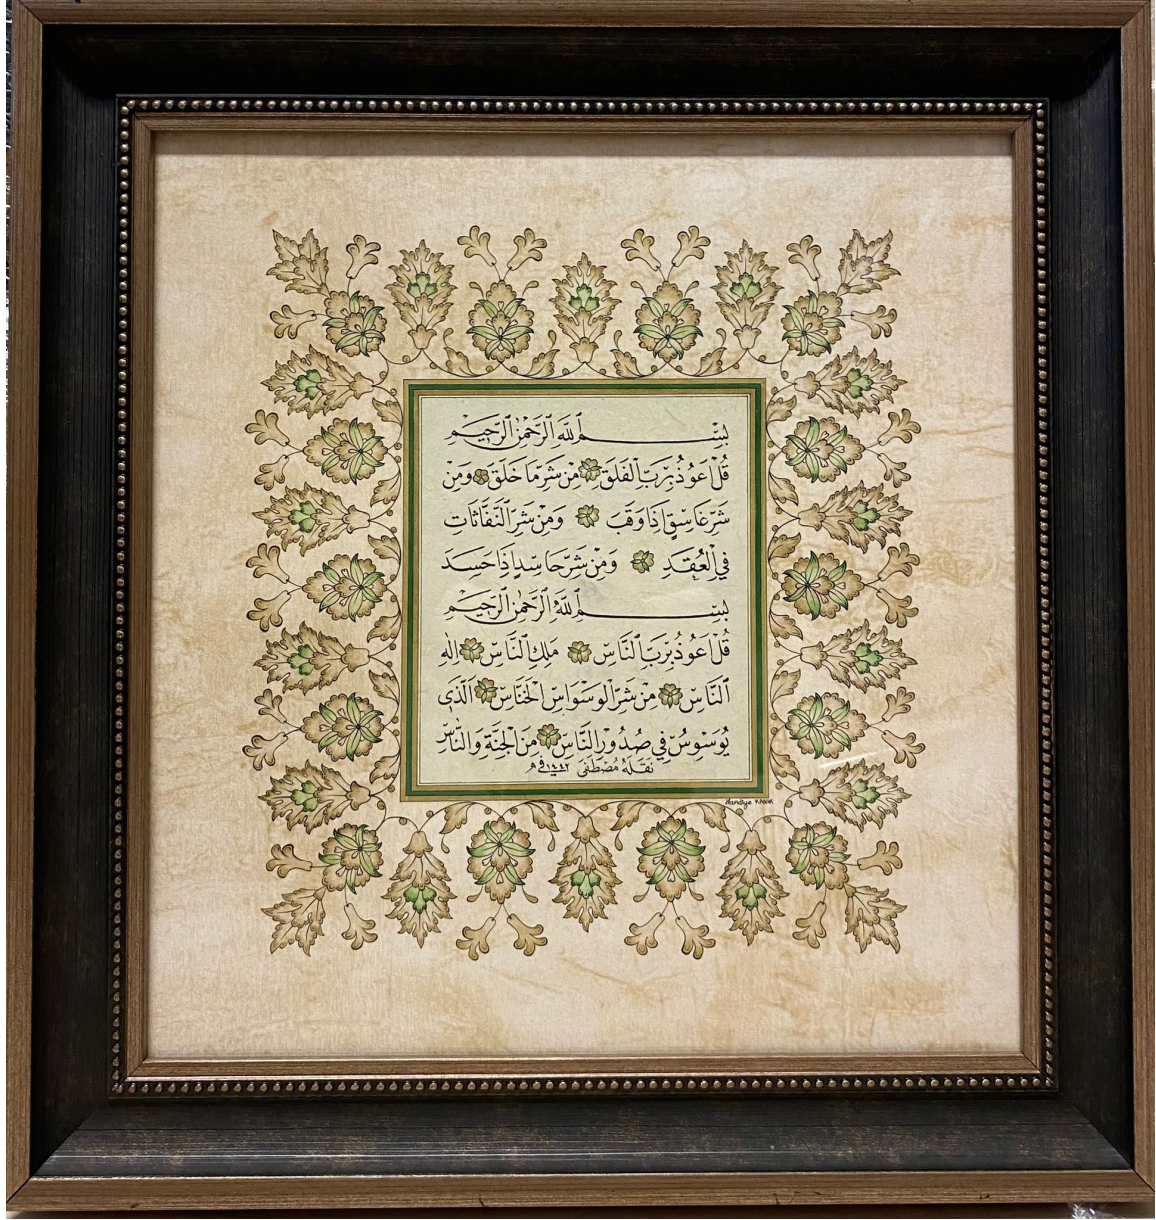 بِسْمِ اللّٰهِ الرَّحْمٰنِ الرَّحِيمِ
قُلْ اَعُوذُ بِرَبِّ الْفَلَقِ مِنْ شَرِّ مَا خَلَقَ وَمِنْ
شَرِّ غَاسِقٍ اِذَا وَقَبَ وَمِنْ شَرِّ النَّفَّاثَاتِ
فِي الْعُقَدِ وَمِنْ شَرِّ حَاسِدٍ اِذَا حَسَدَ
بِسْمِ اللّٰهِ الرَّحْمٰنِ الرَّحِيمِ
قُلْ اَعُوذُ بِرَبِّ النَّاسِ مَلِكِ النَّاسِ اِلٰهِ
النَّاسِ مِنْ شَرِّ الْوَسْوَاسِ الْخَنَّاسِ اَلَّذِي
يُوَسْوِسُ فِي صُدُورِ النَّاسِ مِنَ الْجِنَّةِ وَالنَّاسِ
نقله مصطفى في ١٤٤٢ هـ
Hamdiye KANIK